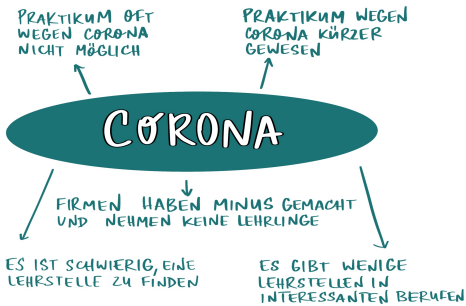 PRAKTIKUM OFT
WEGEN CORONA
NICHT MÖGLICH
PRAKTIKUM WEGEN
CORONA KÜRZER
GEWESEN
CORONA
FIRMEN HABEN MINUS GEMACHT
UND NEHMEN KEINE LEHRLINGE
ES IST SCHWIERIG, EINE
LEHRSTELLE ZU FINDEN
ES GIBT WENIGE
LEHRSTELLEN IN
INTERESSANTEN BERUFEN